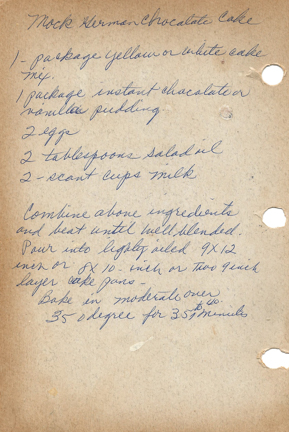 Mock German Chocolate Cake
1 - package yellow or white cake
mix.
1 package instant chocolate or
vanilla pudding
2 eggs
2 tablespoons salad oil
2 - scant cups milk
Combine above ingredients
and beat until well blended.
Pour into lightly oiled 9X12
inch or 8X10 - inch or two 9 inch
layer cake pans -
Bake in moderate oven
350 degree for 35 to 40 minutes